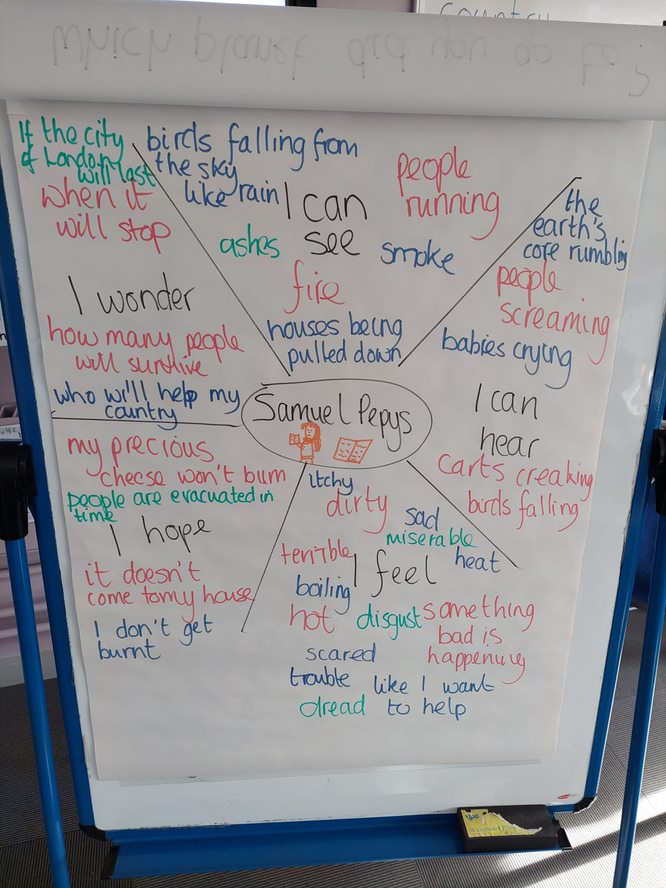 country
Which planet did you go to?
If the city
of London
will last
when it
will stop
I wonder
how many people
will survive
who will help my
country
birds falling from
the sky
like rain
I can
see
people
running
ashes
smoke
fire
houses being
pulled down
the
earth's
core rumbling
people
screaming
babies crying
I can
hear
carts creaking
birds falling
Samuel Pepys
my precious
cheese won't burn
people are evacuated in
time
I hope
it doesn't
come to my house
I don't get
burnt
itchy
dirty
sad
miserable
terrible
I feel
heat
boiling
hot
disgust
something
bad is
happening
scared
trouble
like I want
to help
dread